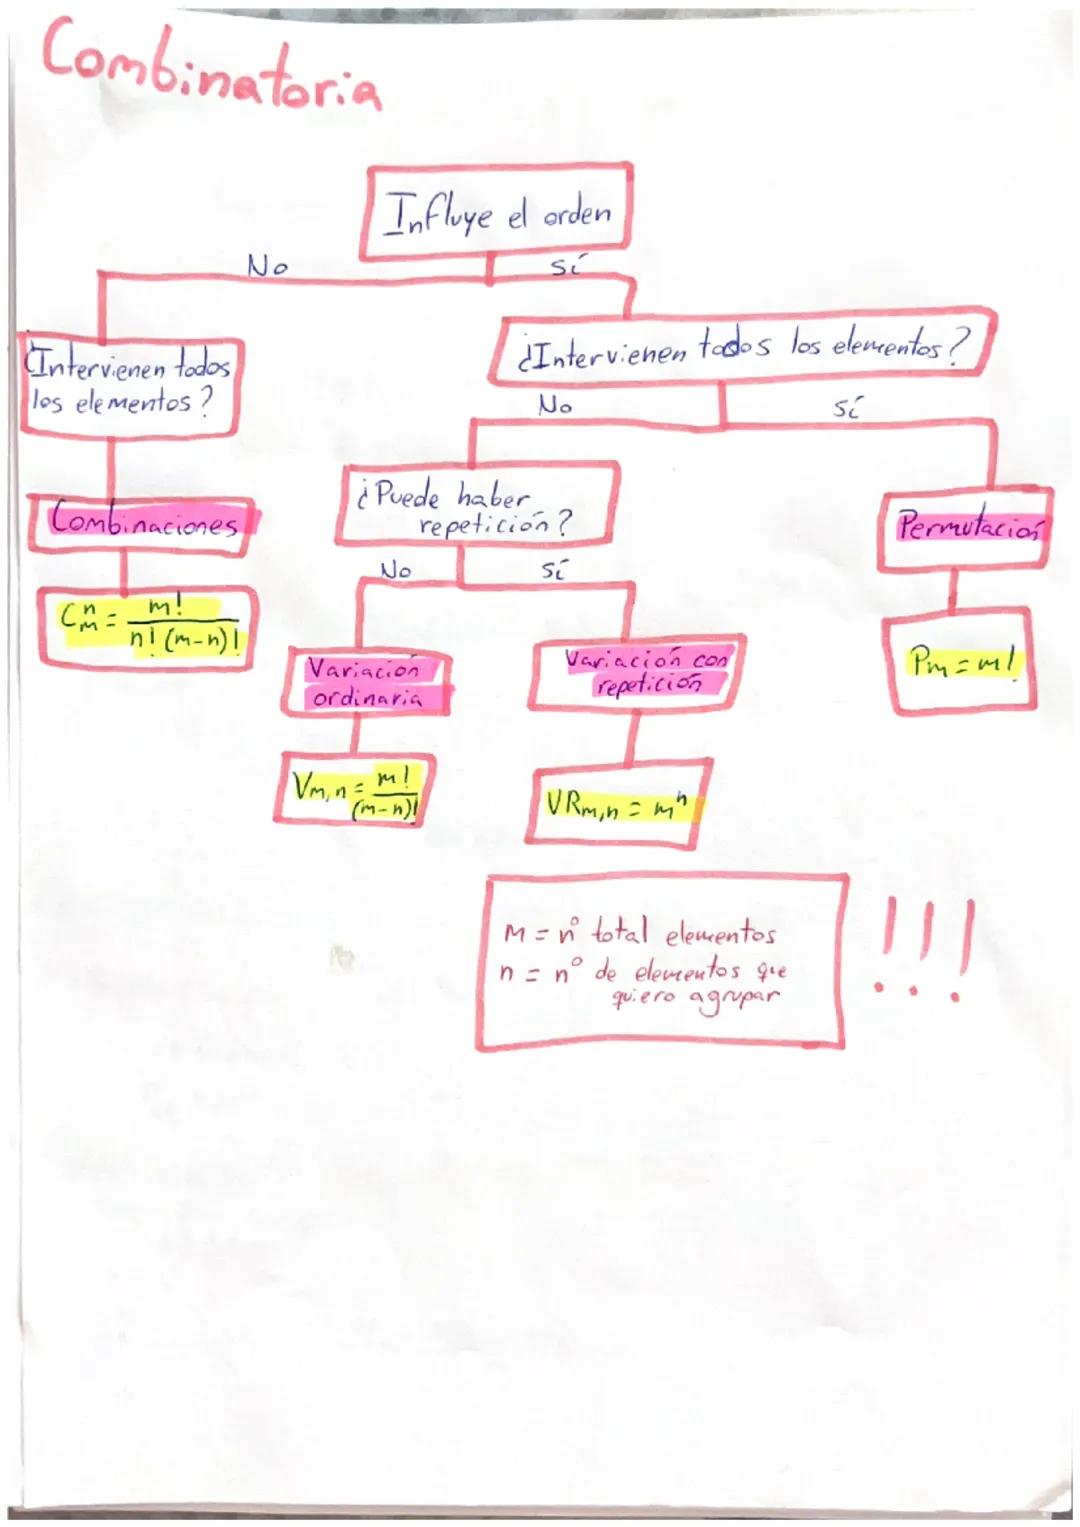 Combinatoria
Influye el orden
No
Sí
¿Intervienen todos
los elementos?
¿Intervienen todos los elementos?
No
Sí
Combinaciones
¿Puede haber
repetición?
Permutación
No
Sí
C_m^n = m! / n! (m-n)!
Pm = m!
Variación
ordinaria
Variación con
repetición
Vm,n = m! / (m-n)!
VRm,n = m^n
M = nº total elementos
n = nº de elementos que
quiero agrupar
!!!